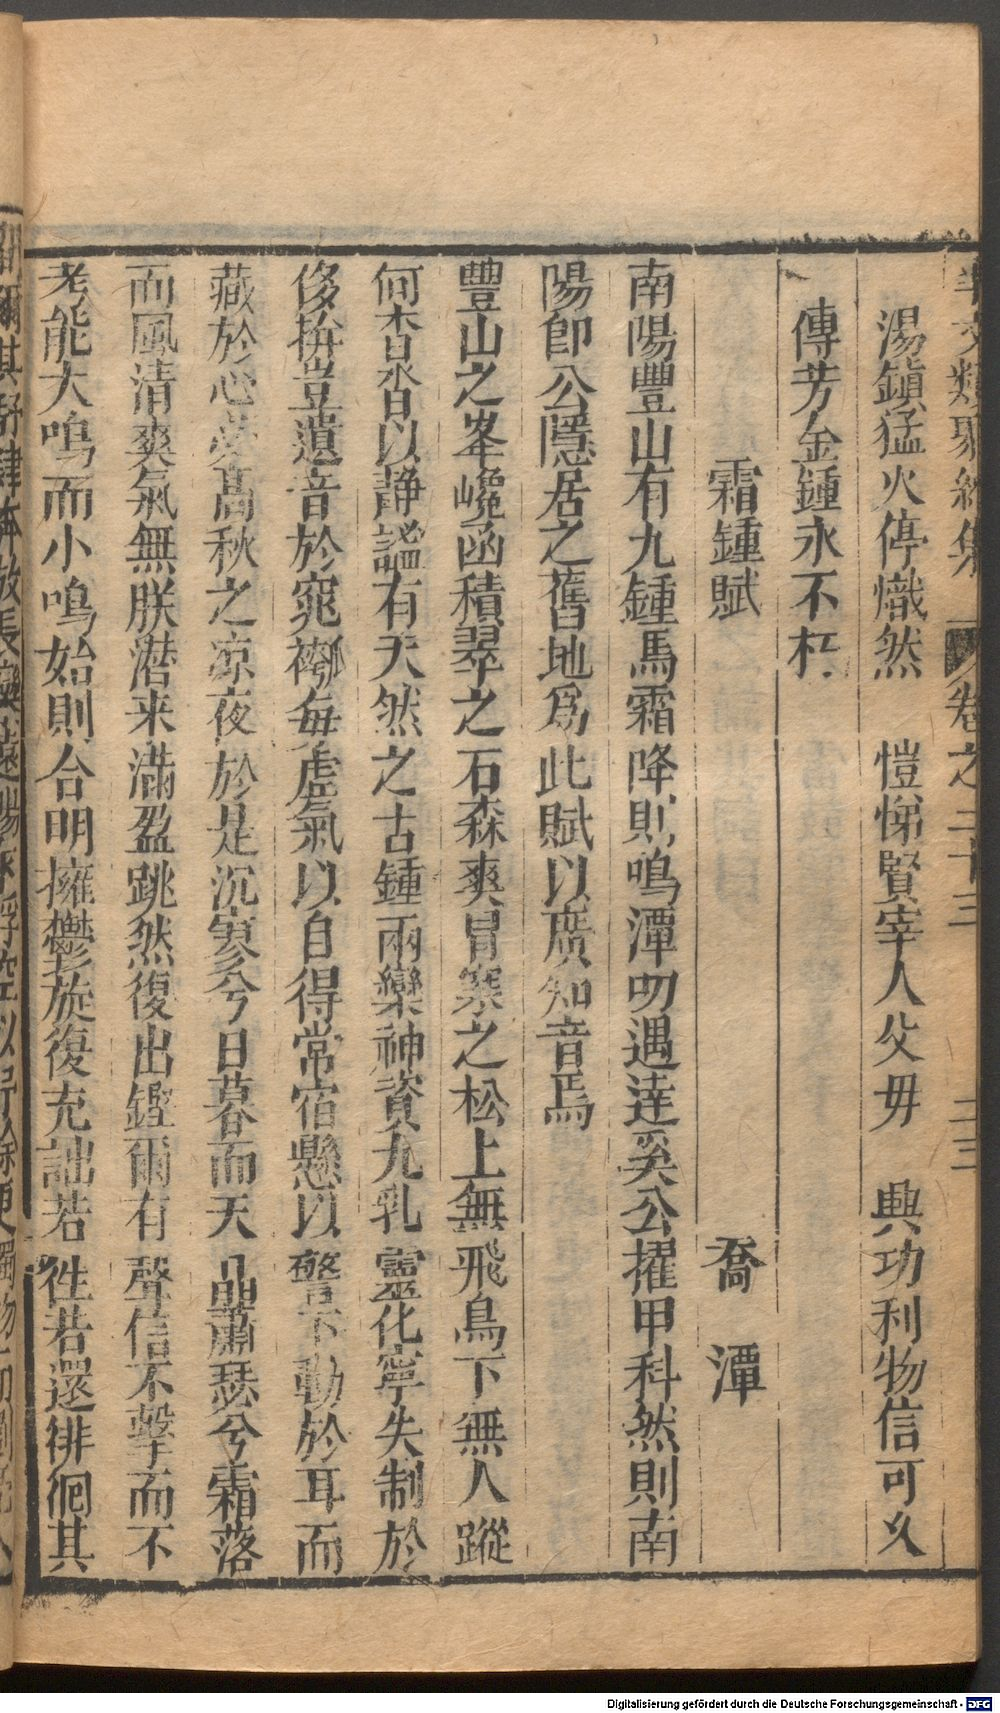 事文類聚續集 卷之二十三 二三
湯鎮猛火停熾然 愷悌賢宰人父毋 興功利物信可久
傳芳金鍾永不朽
霜鍾賦 喬潭
南陽豐山有九鍾焉霜降則鳴潭叨遇達奚公擢甲科然則南
陽卽公隱居之舊地爲此賦以廣知音焉
豐山之峯巉函積翠之石森爽冒寒之松上無飛鳥下無人蹤
何杳沓以靜謐有天然之古鍾兩欒神資九乳靈化寧失制於
侈弇豈遺音於窕槬每虛氣以自得常宿懸以警下動於耳而
藏於心夢高秋之凉夜於是沉寥兮日暮而天晶蕭瑟兮霜落
而風清爽氣無朕潛来滿盈跳然復出鏗爾有聲信不擊而不
考能大鳴而小鳴始則合明擁鬱旋復充詘若徃若還徘徊其
Digitalisierung gefördert durch die Deutsche Forschungsgemeinschaft - DFG